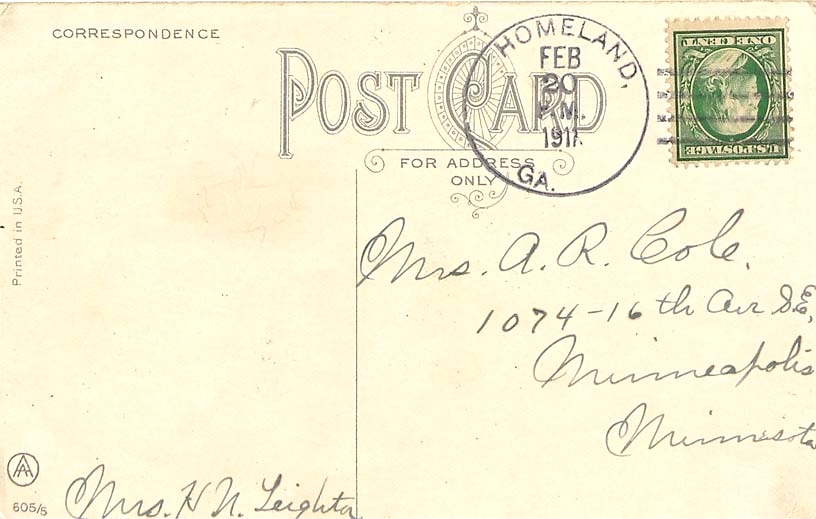 CORRESPONDENCE
POST CARD
FOR ADDRESS
ONLY
HOMELAND,
FEB
20
P.M.
1911
GA.
ONE CENT 1
U.S. POSTAGE
Printed in U.S.A.
Mrs. A. R. Cole.
1074-16th Av SE,
Minneapolis
Minnesota
AA
605/5
Mrs. H N. Leighton